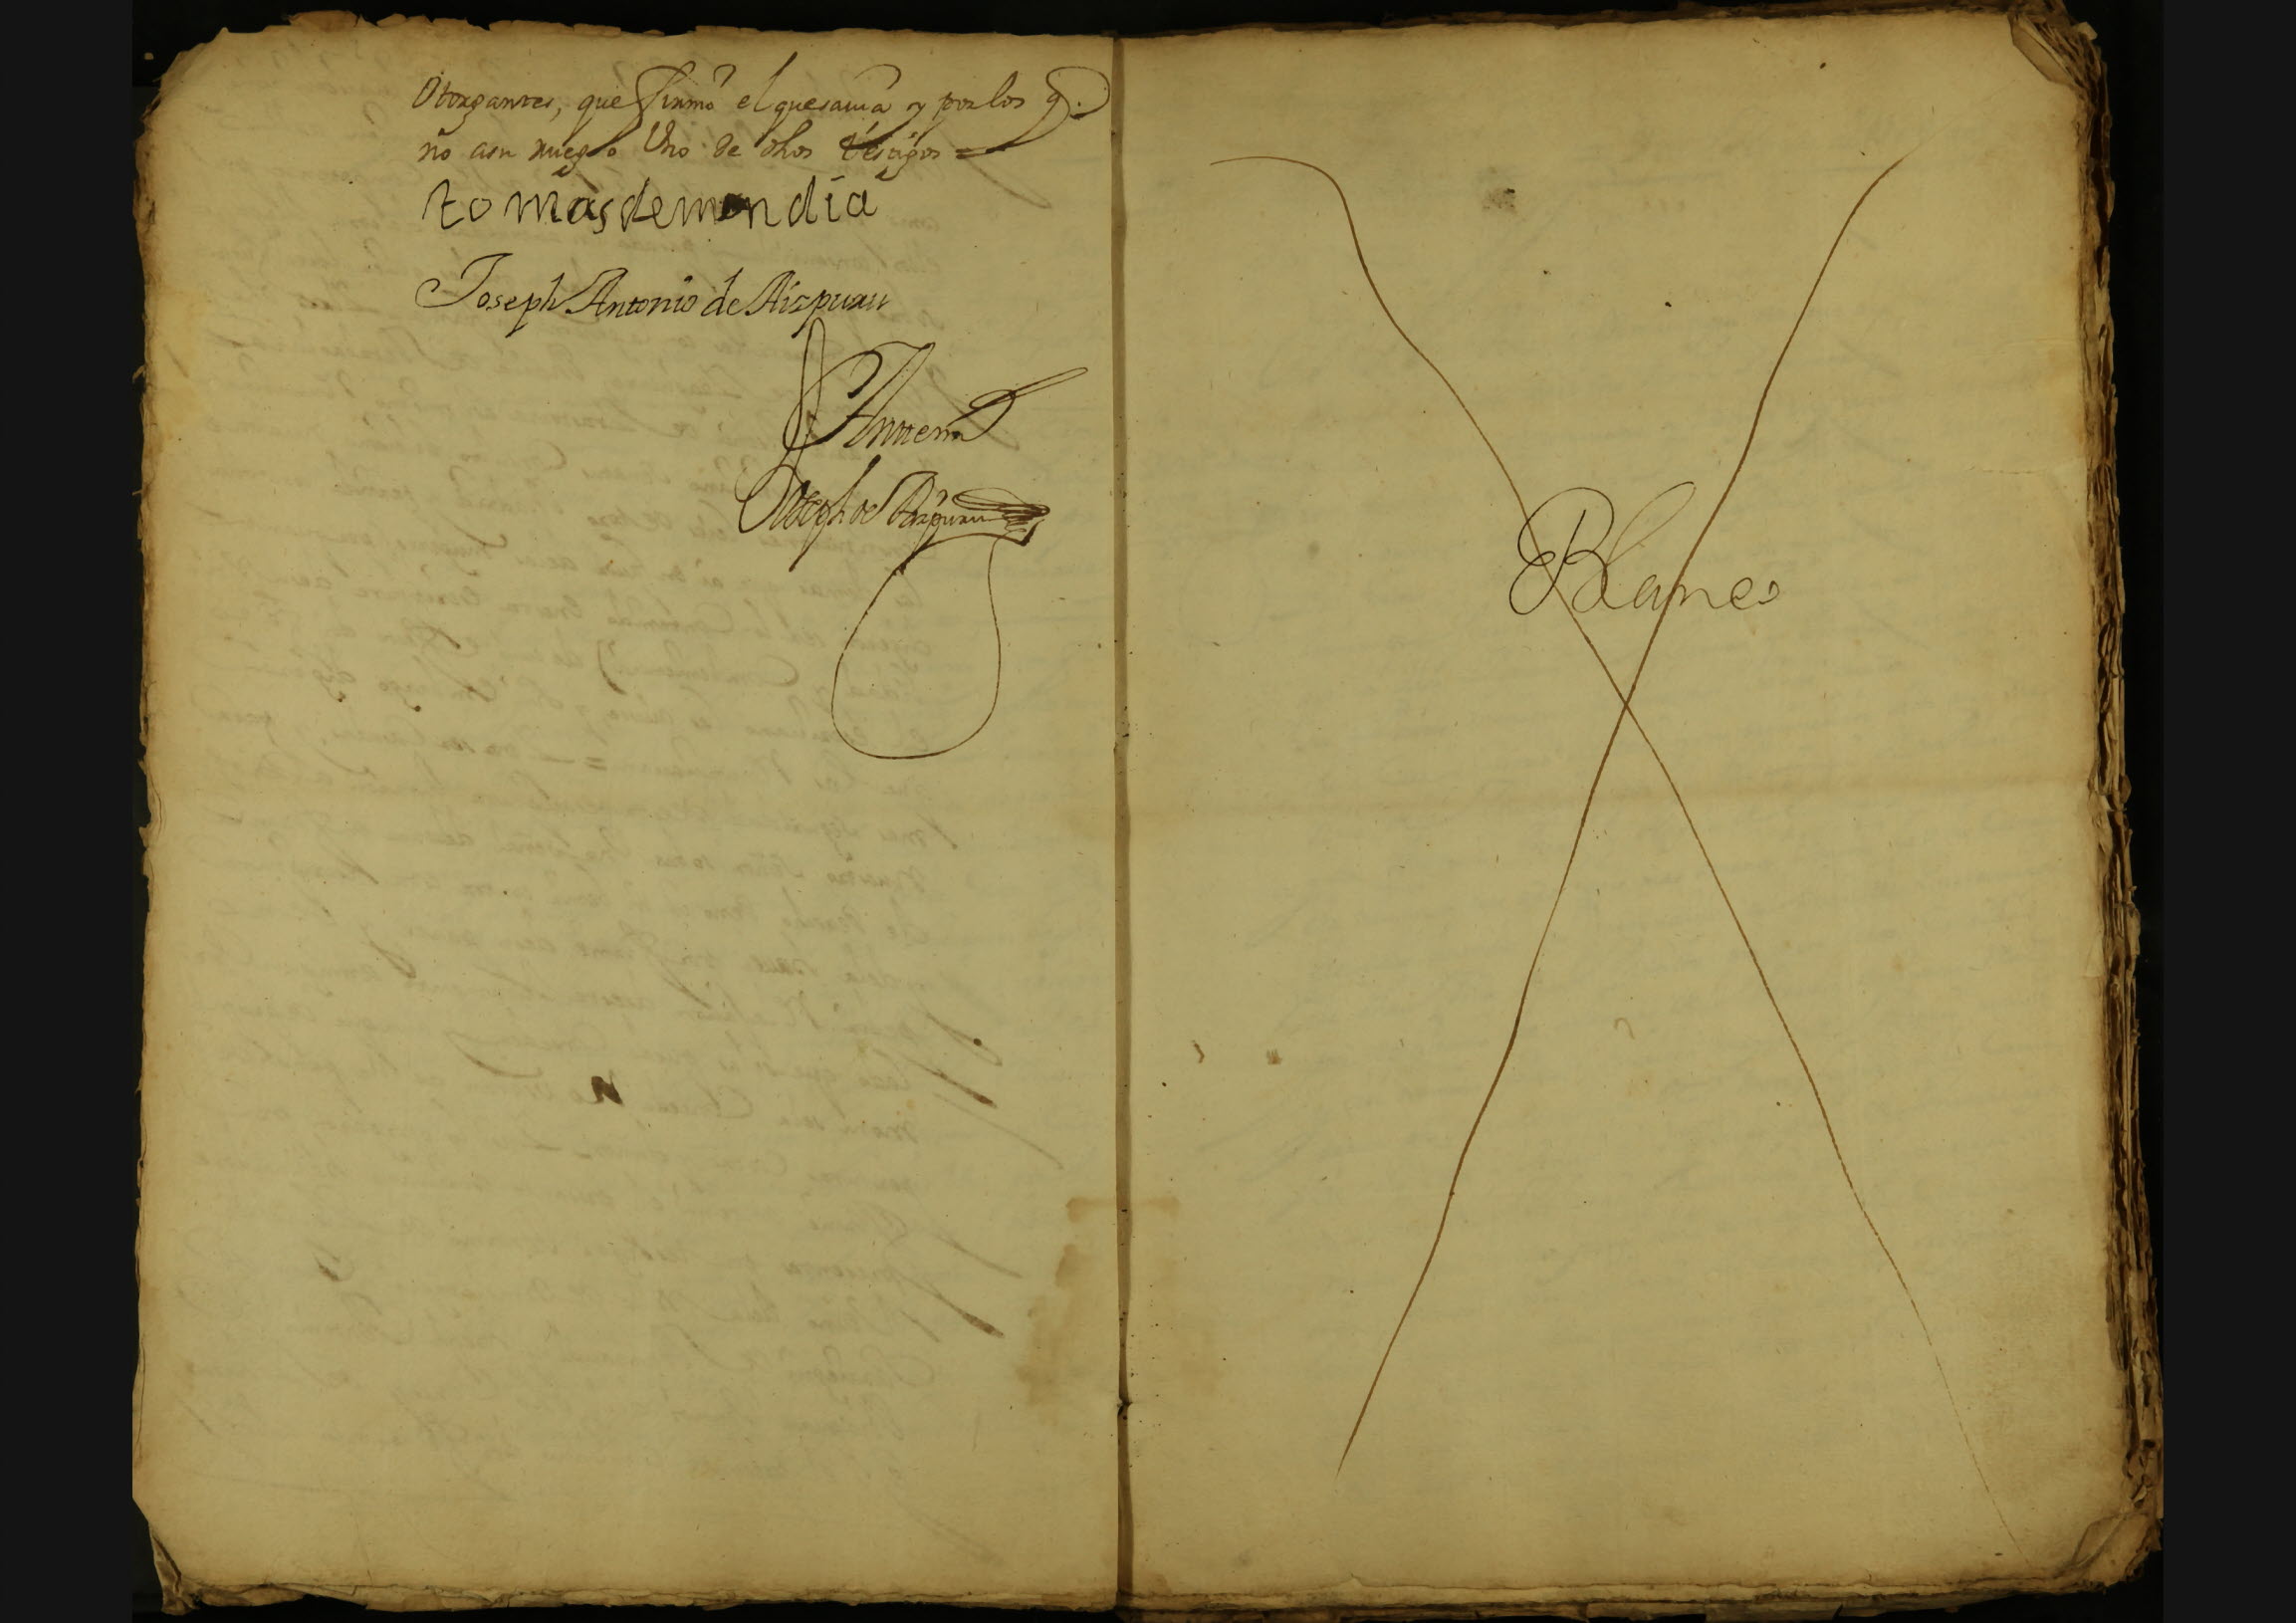 Otorgantes, que firmó el que savia y por los q.
nó a su ruego Uno de dhos testigos =
tomas de mendia
Joseph Antonio de Aizpuru
Antte mi
Joseph de Aizpuru
Blanco